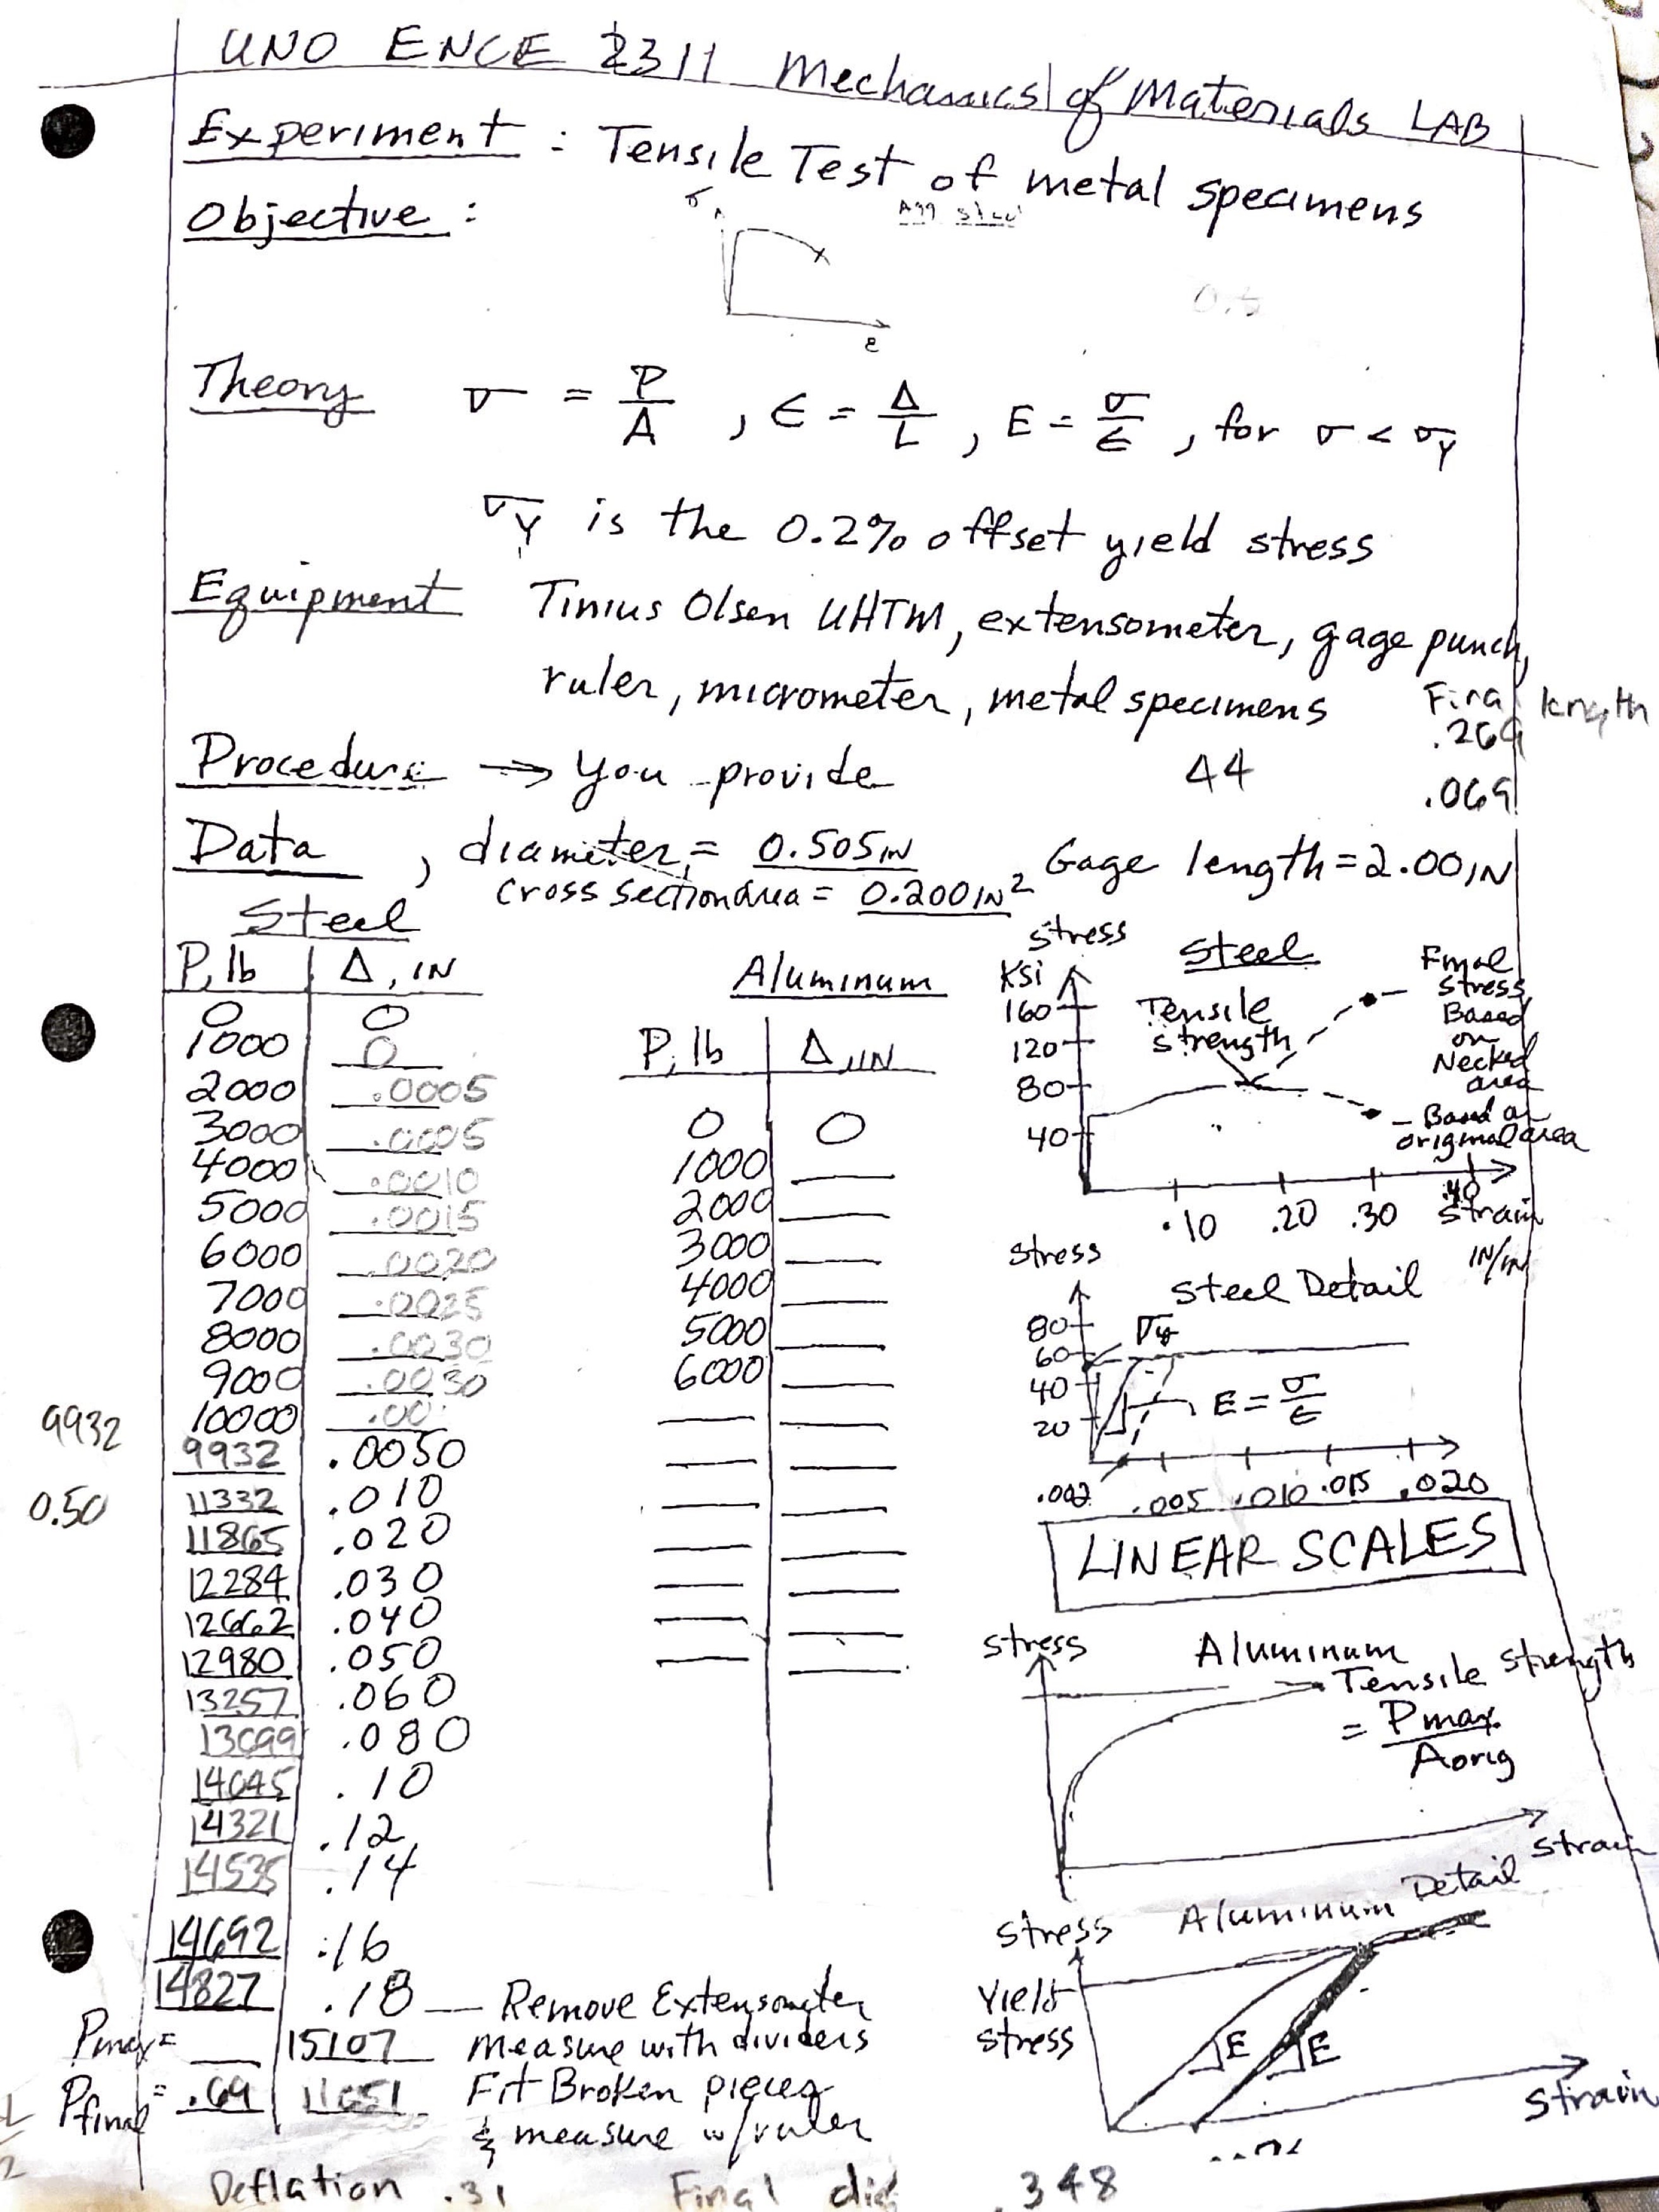 UNO ENCE 2311 Mechanics of Materials LAB
Experiment : Tensile Test of metal specimens
Objective :
σ
ε
Theory σ = P/A , ε = Δ/L , E = σ/ε , for σ < σY
σY is the 0.2% offset yield stress
Equipment Tinius Olsen UHTM, extensometer, gage punch,
ruler, micrometer, metal specimens
Final length
.269
Procedure → you provide 44
.069
Data , diameter = 0.505 IN Gage length = 2.00 IN
cross section area = 0.200 IN²
Steel
P, lb Δ, IN
0 0
1000 0
2000 .0005
3000 .0005
4000 .0010
5000 .0015
6000 .0020
7000 .0025
8000 .0030
9000 .0030
10000 .00
9932
9932 .0050
0.50
11332 .010
11865 .020
12284 .030
12662 .040
12980 .050
13257 .060
13699 .080
14045 .10
14321 .12
14535 .14
14692 .16
14827 .18 — Remove Extensometer
Pmax = 15107 measure with dividers
Pfinal = .69 11651 Fit Broken pieces
& measure w/ruler
Deflation .31 Final dia .348
Aluminum
P, lb Δ, IN
0 0
1000
2000
3000
4000
5000
6000
Stress
Ksi
Steel
160
120
80
40
Tensile
strength
Final
stress
Based
on
Necked
area
- Based on
original area
.10 .20 .30 .40
Strain
IN/IN
Stress
Steel Detail
80
60
40
20
σy
E = σ/ε
.002 .005 .010 .015 .020
LINEAR SCALES
Stress
Aluminum
Tensile strength
= Pmax/Aorig
Strain
Stress
Aluminum Detail
Yield
Stress
E E
Strain